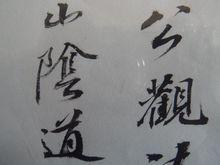 公觀
山陰道